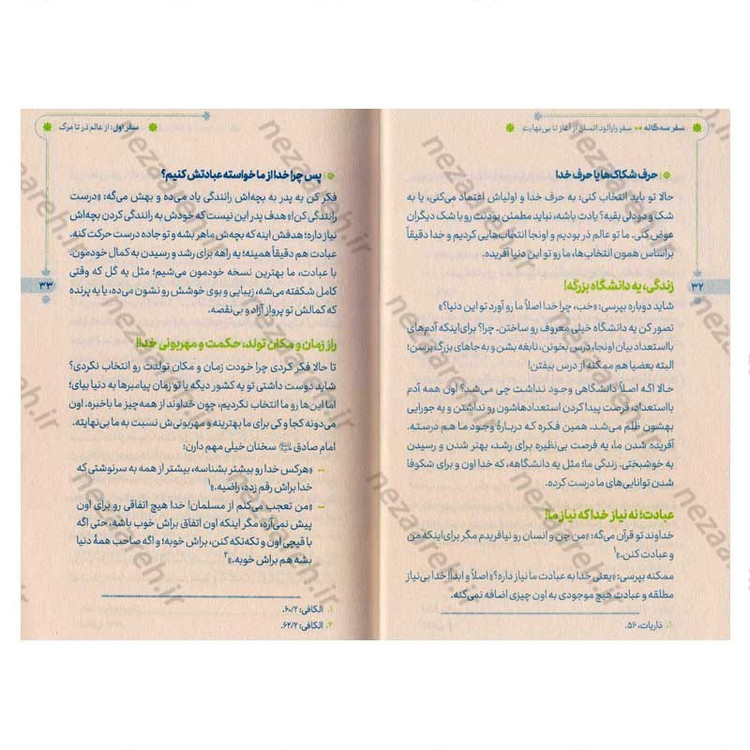 سفر سه‌گانه •• سفر رازآلود انسان از آغاز تا بی نهایت
۳۲
حرف شکاک‌ها یا حرف خدا
حالا تو باید انتخاب کنی: به حرف خدا و اولیاش اعتماد می‌کنی، یا به
شک و دودلی بقیه؟ یادت باشه، نباید مطمئن بودنت رو با شک دیگران
عوض کنی. ما تو عالم ذر بودیم و اونجا انتخاب‌هایی کردیم و خدا دقیقاً
براساس همون انتخاب‌ها، ما رو تو این دنیا آفریده.
زندگی، یه دانشگاه بزرگه!
شاید دوباره بپرسی: «خب، چرا خدا اصلاً ما رو آورد تو این دنیا؟»
تصور کن یه دانشگاه خیلی معروف رو ساختن. چرا؟ برای اینکه آدم‌های
بااستعداد بیان اونجا، درس بخونن، نابغه بشن و به جاهای بزرگ برسن؛
البته بعضیا هم ممکنه از درس بیفتن!
حالا اگه اصلاً دانشگاهی وجود نداشت چی می‌شد؟ اون همه آدم
بااستعداد، فرصت پیدا کردن استعدادهاشون رو نداشتن و یه جورایی
بهشون ظلم می‌شد. همین فکره که دربارهٔ وجود ما هم درسته.
آفریده شدن ما، یه فرصت بی‌نظیره برای رشد، بهتر شدن و رسیدن
به خوشبختی. زندگی ما؛ مثل یه دانشگاهه، که خدا اون و برای شکوفا
شدن توانایی‌های ما درست کرده.
عبادت؛ نه نیاز خدا که نیاز ما!
خداوند تو قرآن می‌گه: «من جن و انسان رو نیافریدم مگر برای اینکه من
و عبادت کنن.۱
ممکنه بپرسی: «یعنی خدا به عبادت ما نیاز داره؟» اصلاً و ابداً! خدا بی‌نیاز
مطلقه و عبادت هیچ موجودی به اون چیزی اضافه نمی‌کنه.
۱. ذاریات، ۵۶.
سفر اول: از عالم ذر تا مرگ
۳۳
پس چرا خدا از ما خواسته عبادتش کنیم؟
فکر کن یه پدر به بچه‌اش رانندگی یاد می‌ده و بهش می‌گه: «درست
رانندگی کن!» هدف پدر این نیست که خودش به رانندگی کردن بچه‌اش
نیاز داره؛ هدفش اینه که بچه‌ش ماهر بشه و تو جاده درست حرکت کنه.
عبادت هم دقیقاً همینه؛ یه راهه برای رشد و رسیدن به کمال خودمون.
با عبادت، ما بهترین نسخه خودمون می‌شیم؛ مثل یه گل که وقتی
کامل شکفته می‌شه، زیبایی و بوی خوشش رو نشون می‌ده، یا یه پرنده
که کمالش تو پرواز آزاد و بی‌نقصه.
راز زمان و مکان تولد، حکمت و مهربونی خدا!
تا حالا فکر کردی چرا خودت زمان و مکان تولدت رو انتخاب نکردی؟
شاید دوست داشتی تو یه کشور دیگه یا تو زمان پیامبرها به دنیا بیای؛
اما این‌ها رو ما انتخاب نکردیم، چون خداوند از همه‌چیز ما باخبره. اون
می‌دونه کجا و کی برای ما بهترینه و مهربونی‌ش نسبت به ما بی‌نهایته.
امام صادق سخنان خیلی مهم دارن:
– «هرکس خدا رو بیشتر بشناسه، بیشتر از همه به سرنوشتی که
خدا براش رقم زده، راضیه.»۱
– «من تعجب می‌کنم از مسلمان! خدا هیچ اتفاقی رو برای اون
پیش نمی‌آرد، مگر اینکه اون اتفاق براش خوب باشه، حتی اگه
با قیچی اون و تکه‌تکه کنن، براش خوبه؛ و اگه صاحب همهٔ دنیا
بشه هم براش خوبه.»۲
۱. الکافی: ۶۰/۲.
۲. الکافی: ۶۲/۲.
nezaareh.ir